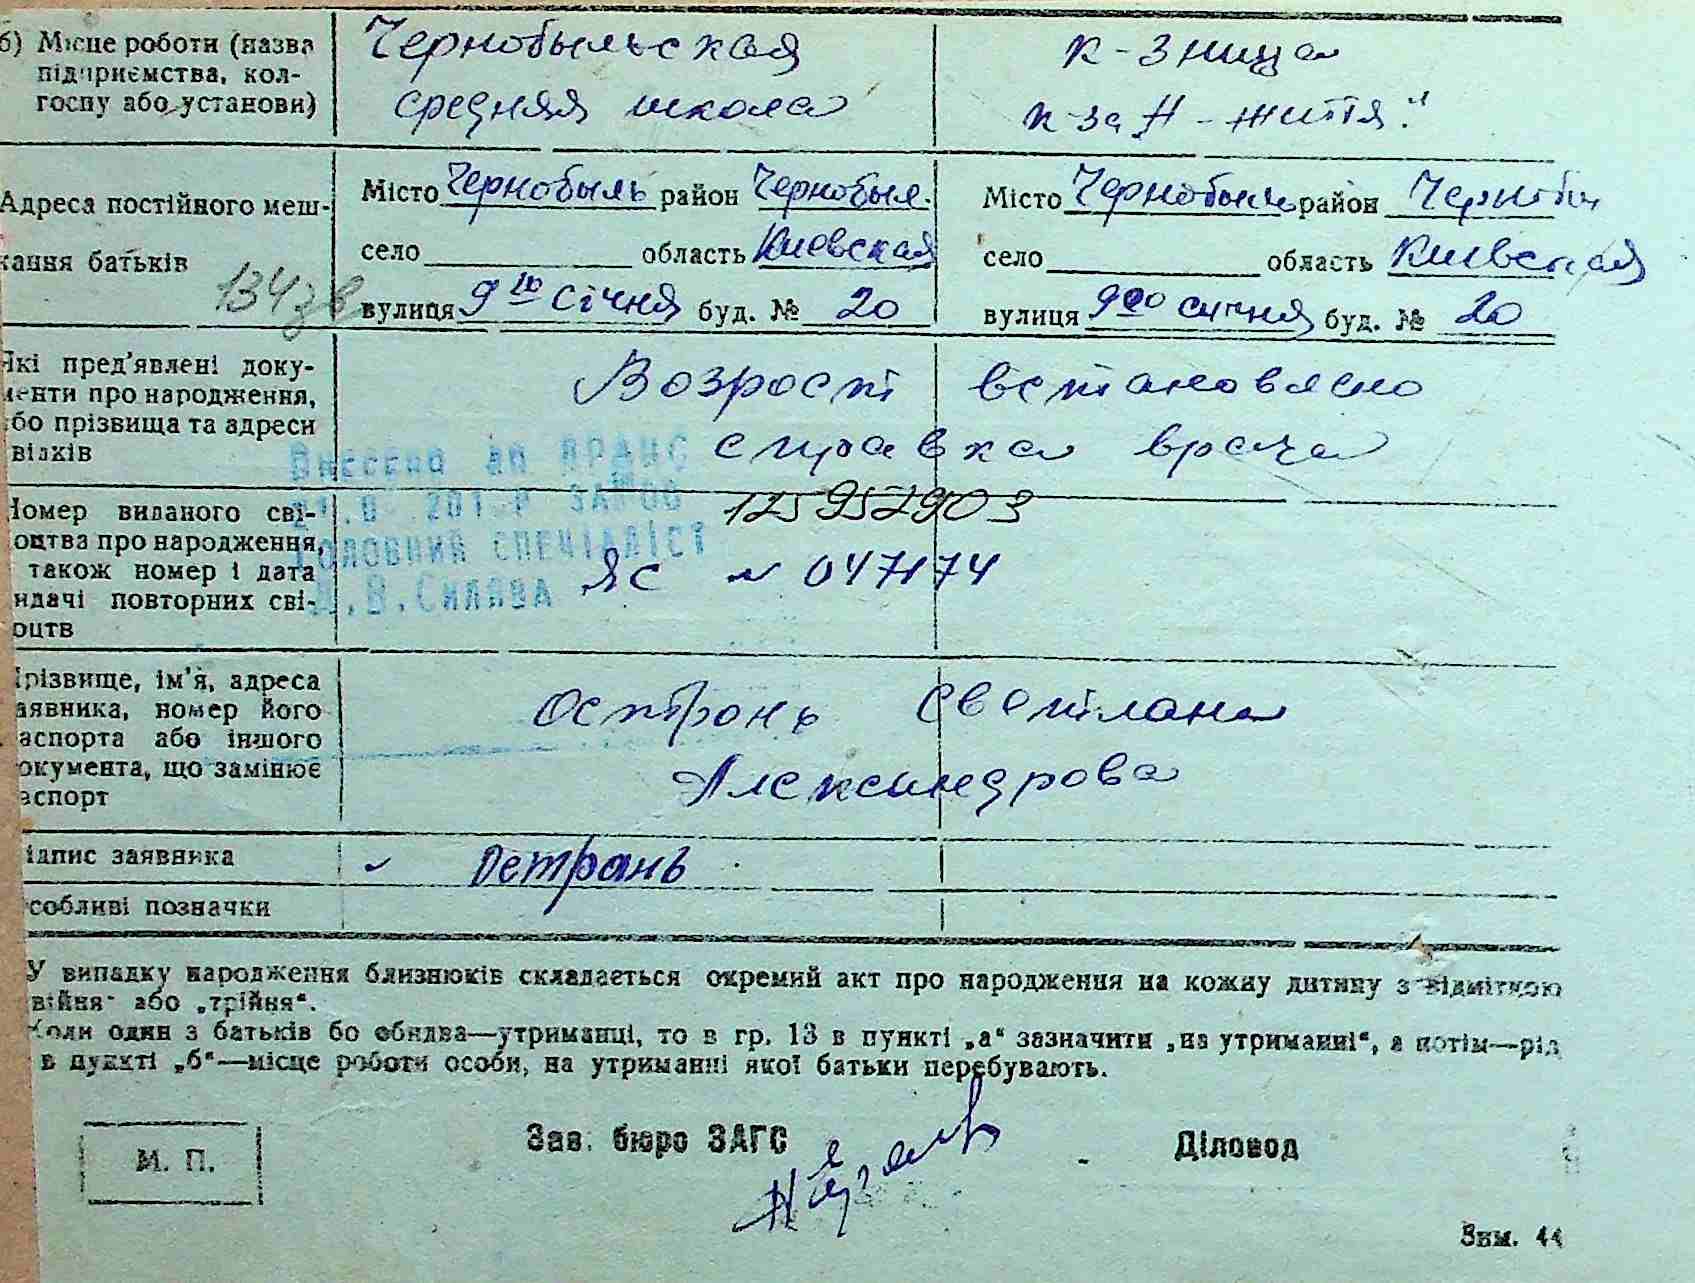 б) Місце роботи (назва Чернобыльская к-зница
підприємства, кол-
госпу або установи) средняя школа к-за Н-життя"
Адреса постійного меш- Місто Чернобыль район Чернобыл. Місто Чернобыль район
кання батьків село область Киевская село область Киевская
134зв вулиця 9го Січня буд. № 20 вулиця 9го січня буд. № 20
Які пред'явлені доку- Возрост встановлено
менти про народження,
або прізвища та адреси справка врача
свідків
Внесено до ДРАЦС
Номер виданого сві- 125952903
доцтва про народження,
ГОЛОВНИЙ СПЕЦІАЛІСТ
також номер і дата ЯС № 047174
видачі повторних сві-
доцтв
Прізвище, ім'я, адреса Острань Светлана
заявника, номер його
паспорта або іншого
документа, що замінює Александрова
паспорт
Підпис заявника Острань
Особливі позначки
У випадку народження близнюків складається окремий акт про народження на кожну дитину з відміткою
"двійня" або „трійня“.
Коли один з батьків бо обидва—утриманці, то в гр. 13 в пункті „а“ зазначити „на утриманні“, а потім—рід
в пункті „б“—місце роботи особи, на утриманні якої батьки перебувають.
М. П. Зав. бюро ЗАГС Діловод
Зам. 44